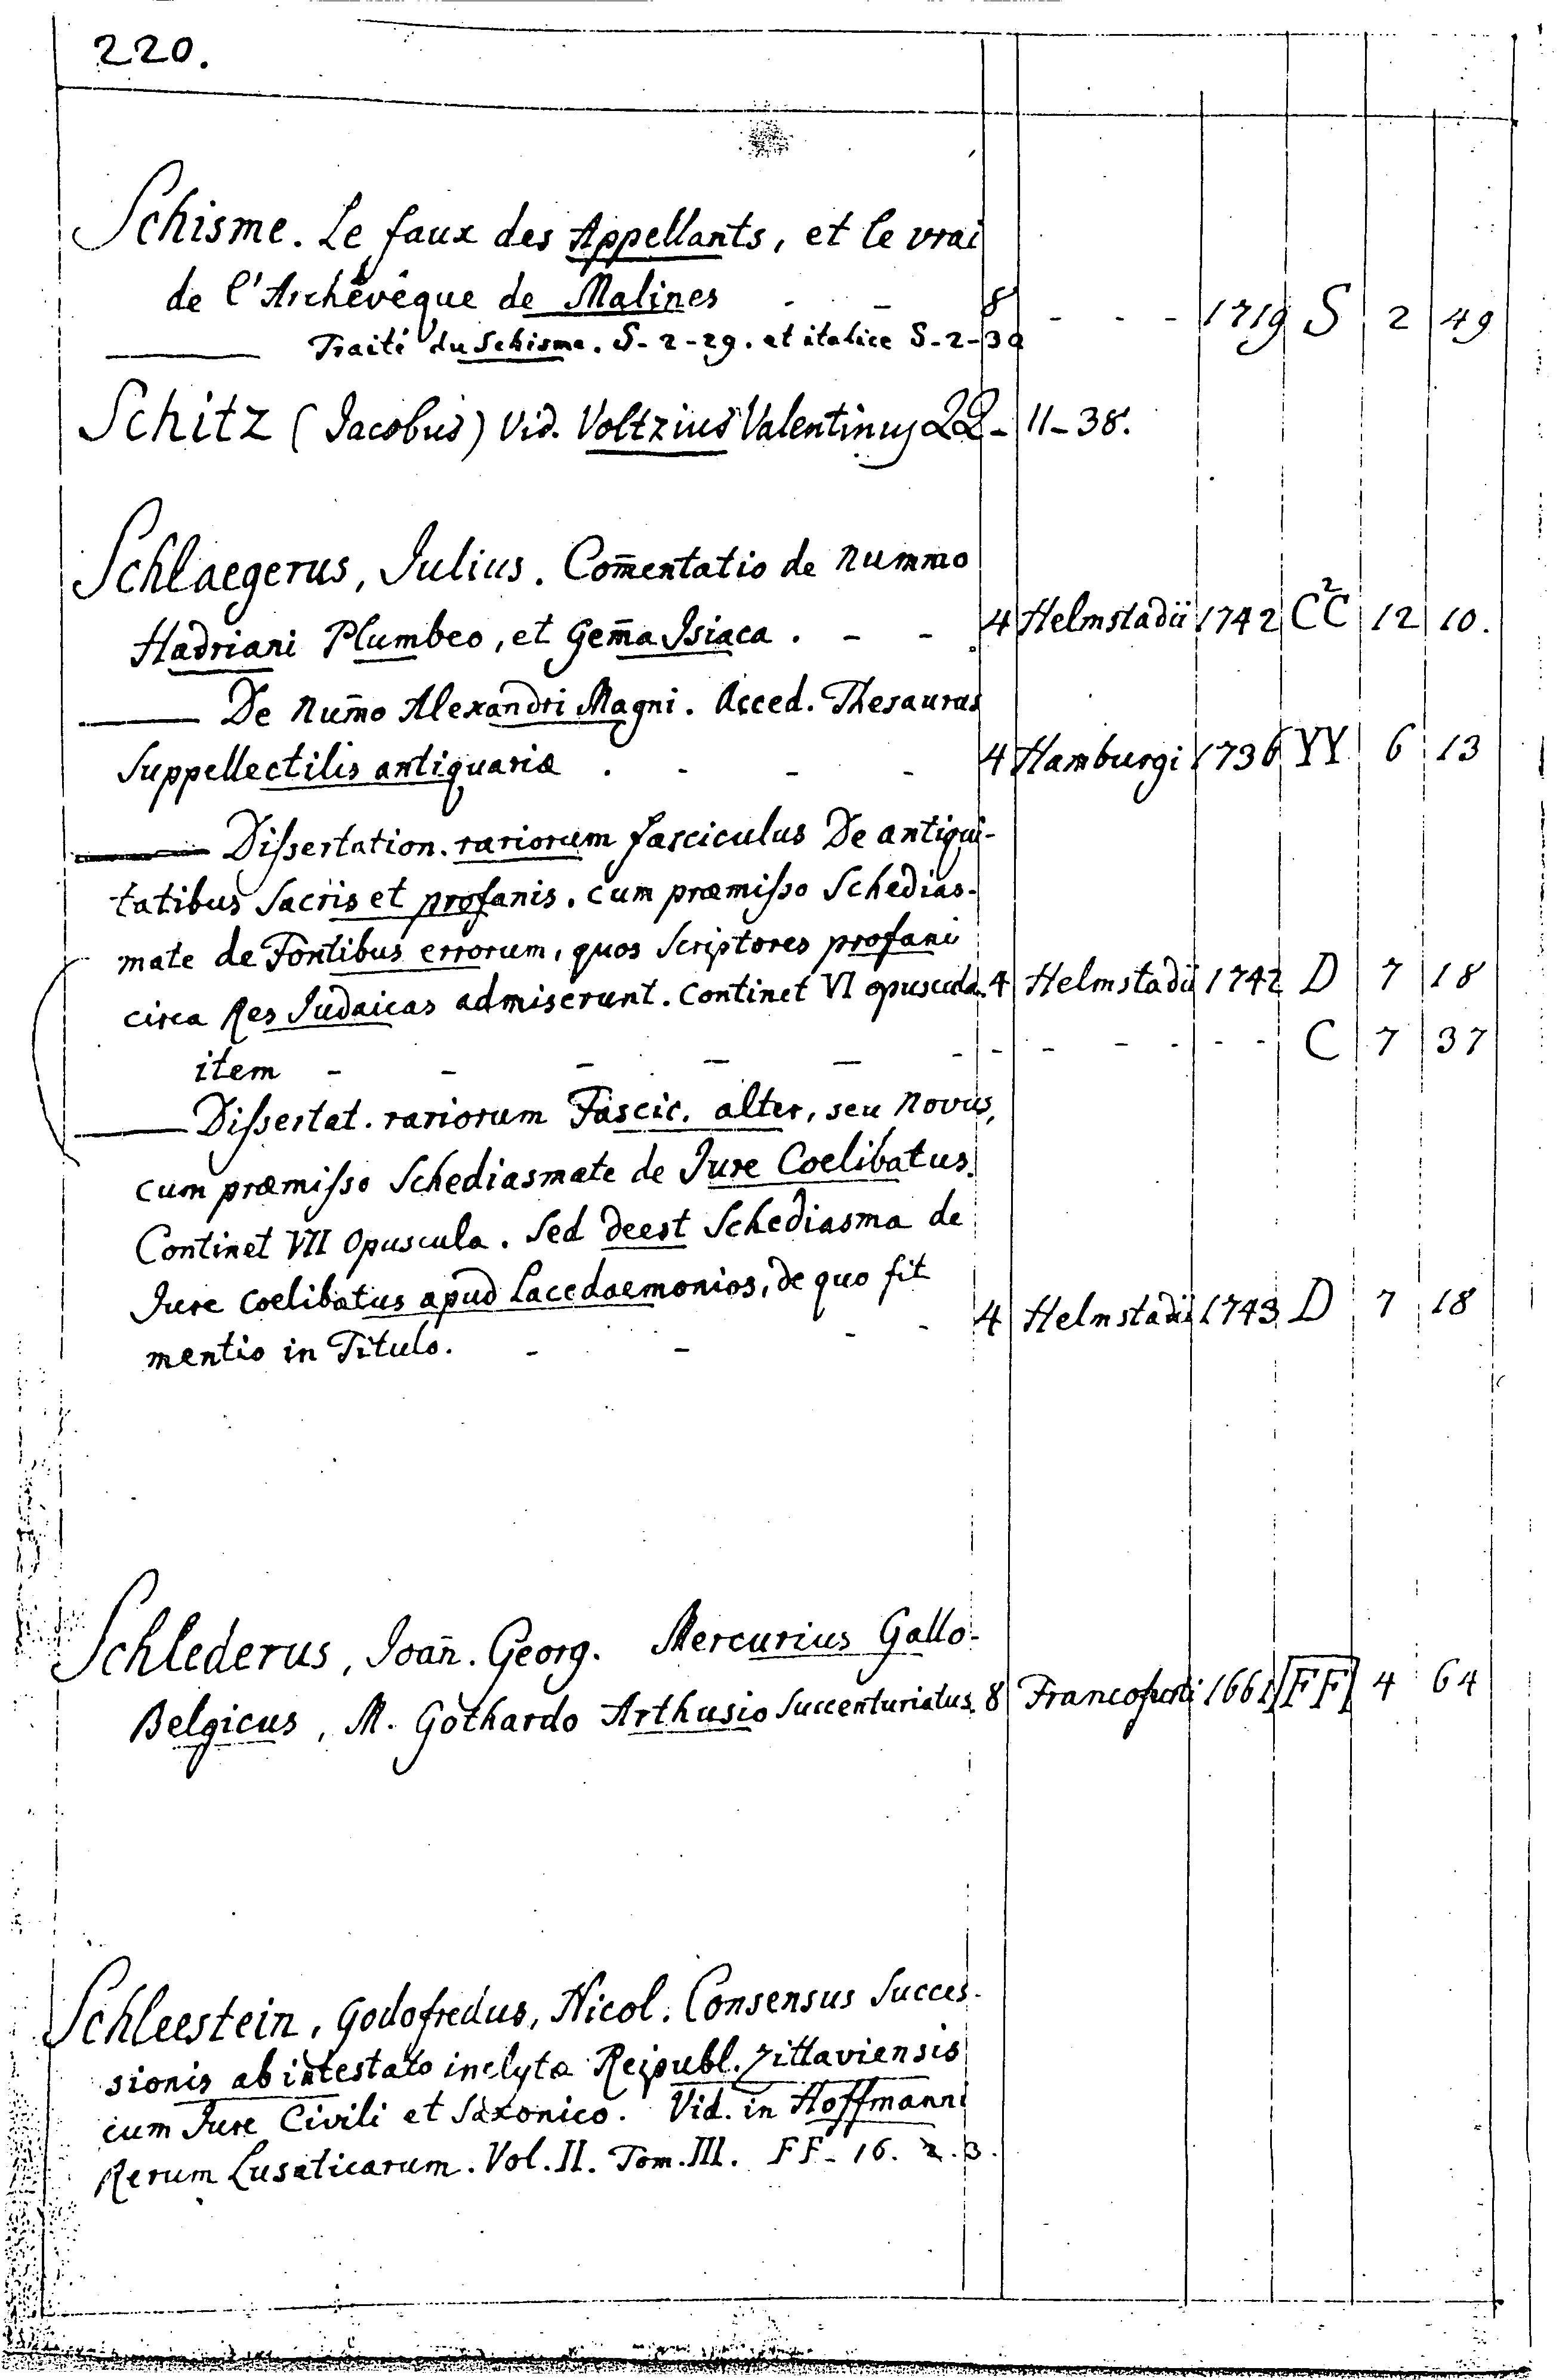 220.
Schisme. Le faux des Appellants, et le vrai
de l'Archêvêque de Malines - - 8 - - - 1719 S 2 49
——— Traité du Schisme. S-2-29. et italice S-2-30
Schitz (Jacobus) Vid. Voltzius Valentinus QQ-11-38.
Schlaegerus, Julius. Com̄entatio de nummo
Hadriani Plumbeo, et Gem̄a Isiaca. - - 4 Helmstadii 1742 C²C 12 10.
——— De Num̄o Alexandri Magni. Acced. Thesaurus
Suppellectilis antiquariæ . - - - 4 Hamburgi 1736 YY 6 13
——— Dissertation. rariorum fasciculus De antiqui-
tatibus Sacris et profanis. cum præmisso Schedias-
mate de Fontibus errorum, quos Scriptores profani
circa Res Judaicas admiserunt. Continet VI opuscula. 4 Helmstadii 1742 D 7 18
item - - - - - - - - - - - - - C 7 37
——— Dissertat. rariorum Fascic. alter, seu Novus,
cum præmisso Schediasmate de Jure Coelibatus.
Continet VII Opuscula. Sed deest Schediasma de
Jure coelibatus apud Lacedaemonios, de quo fit
mentio in Titulo. - - - - 4 Helmstadii 1743 D 7 18
Schlederus, Joan̄. Georg. Mercurius Gallo-
Belgicus, M. Gothardo Arthusio Succenturiatus. 8 Francofurti 1661 FF 4 64
Schleestein, Godofredus, Nicol. Consensus Succes-
sionis ab intestato inclytæ Reipubl. Zittaviensis
cum Jure Civili et Saxonico. Vid. in Hoffmanni
Rerum Lusaticarum. Vol. II. Tom. III. FF- 16. 2. 3.